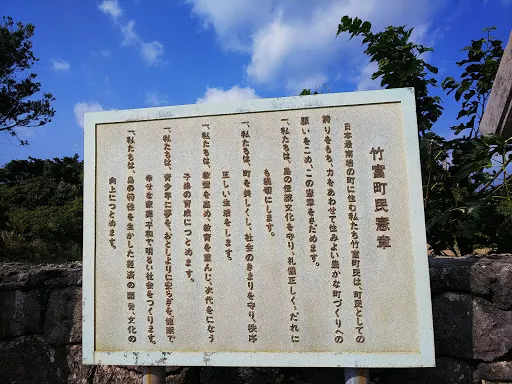 竹富町民憲章
日本最南端の町に住む私たち竹富町民は、町民としての
誇りをもち、力をあわせて住みよい豊かな町づくりへの
願いをこめ、この憲章をさだめます。
一、私たちは、島の伝統文化を守り、礼儀正しく、だれに
も親切にします。
一、私たちは、町を美しくし、社会のきまりを守り、秩序
正しい生活をします。
一、私たちは、教養を高め、教育を重んじ、次代をになう
子孫の育成につとめます。
一、私たちは、青少年に夢を、おとしよりに安らぎを、健康で
幸せな家庭、平和で明るい社会をつくります。
一、私たちは、島の特性を生かした経済の開発、文化の
向上につとめます。